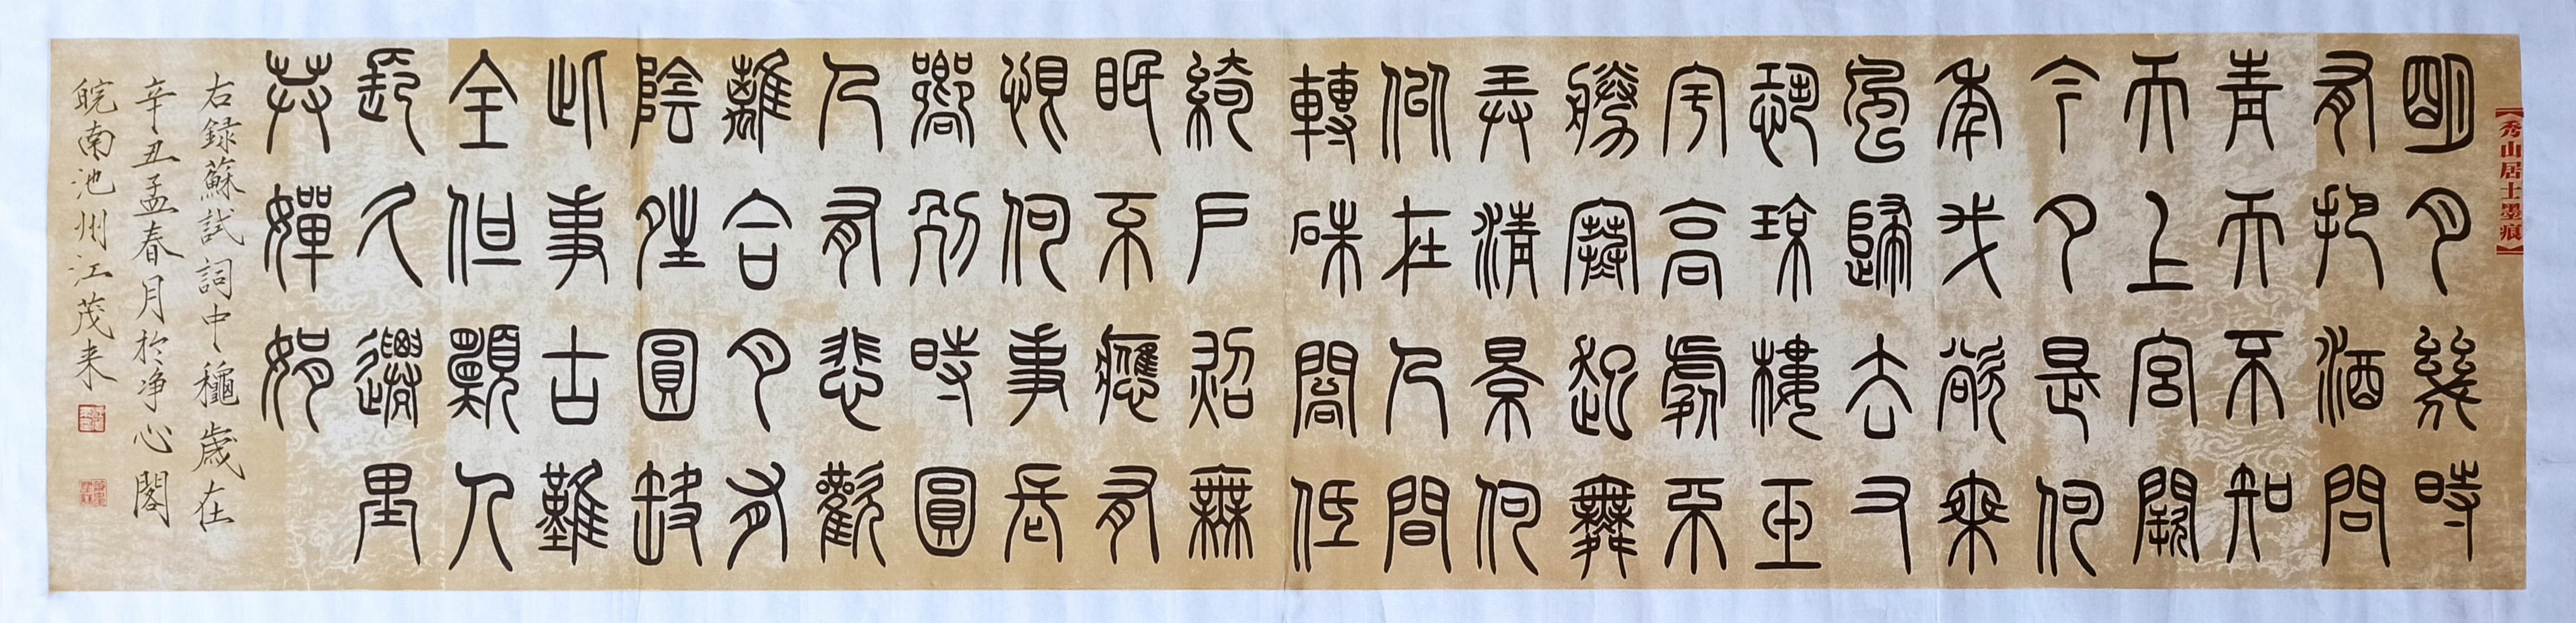 【秀山居士墨痕】
明月幾時
有把酒問
青天不知
天上宮闕
今夕是何
年我欲乘
風歸去又
恐瓊樓玉
宇高處不
勝寒起舞
弄清景何
似在人間
轉硃閣低
綺戶照無
眠不應有
恨何事長
嚮別時圓
人有悲歡
離合月有
陰晴圓缺
此事古難
全但願人
長久遷里
共嬋娟
右録蘇試詞中龝歲在
辛丑孟春月於净心閣
皖南池州江茂来